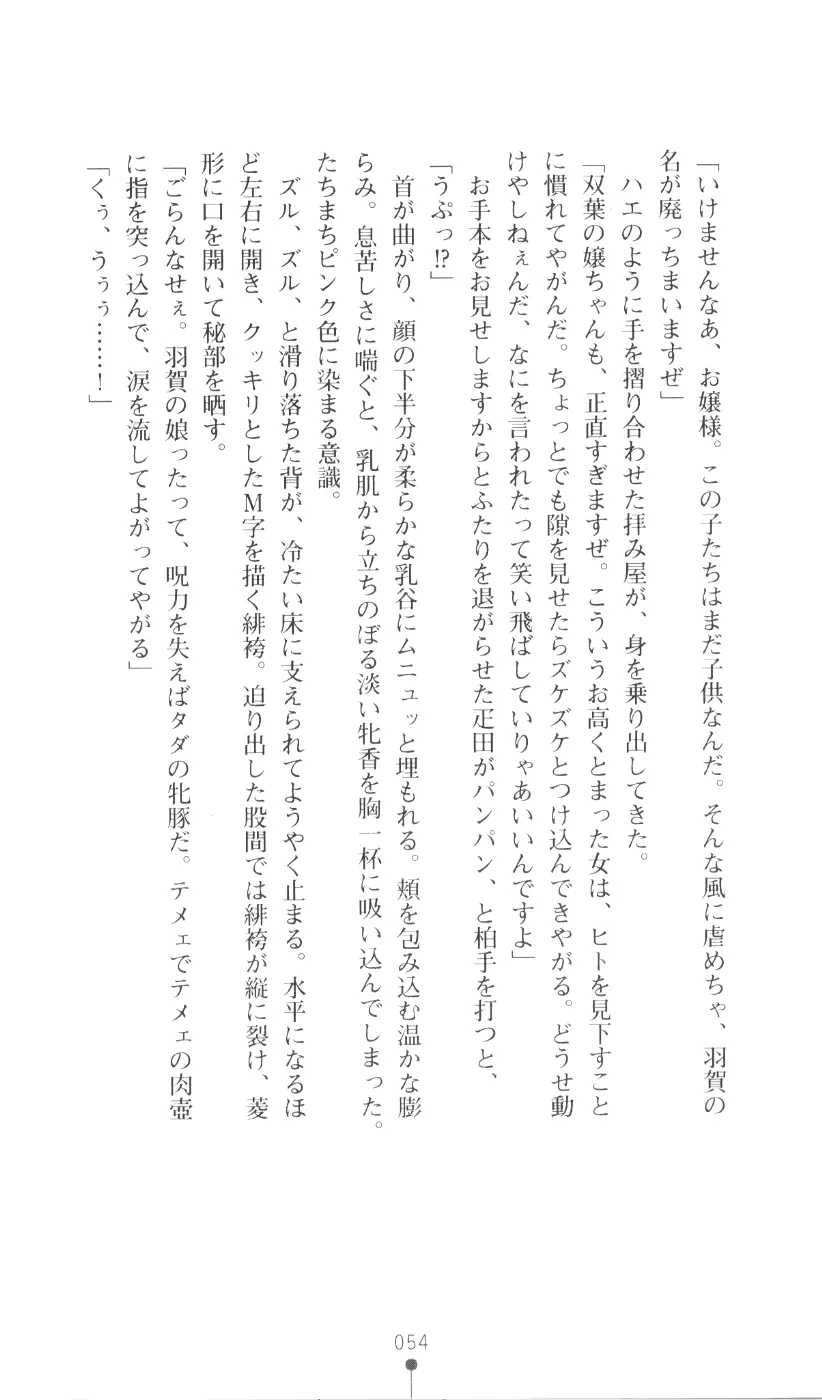 「いけませんなあ、お嬢様。この子たちはまだ子供なんだ。そんな風に虐めちゃ、羽賀の
名が廃っちまいますぜ」
ハエのように手を摺り合わせた拝み屋が、身を乗り出してきた。
「双葉の嬢ちゃんも、正直すぎますぜ。こういうお高くとまった女は、ヒトを見下すこと
に慣れてやがんだ。ちょっとでも隙を見せたらズケズケとつけ込んできやがる。どうせ動
けやしねぇんだ、なにを言われたって笑い飛ばしていりゃあいいんですよ」
お手本をお見せしますからとふたりを退がらせた疋田がパンパン、と柏手を打つと、
「うぷっ!?」
首が曲がり、顔の下半分が柔らかな乳谷にムニュッと埋もれる。頬を包み込む温かな膨
らみ。息苦しさに喘ぐと、乳肌から立ちのぼる淡い牝香を胸一杯に吸い込んでしまった。
たちまちピンク色に染まる意識。
ズル、ズル、と滑り落ちた背が、冷たい床に支えられてようやく止まる。水平になるほ
ど左右に開き、クッキリとしたM字を描く緋袴。迫り出した股間では緋袴が縦に裂け、菱
形に口を開いて秘部を晒す。
「ごらんなせぇ。羽賀の娘ったって、呪力を失えばタダの牝豚だ。テメェでテメェの肉壺
に指を突っ込んで、涙を流してよがってやがる」
「くぅ、うぅぅ……！」
054